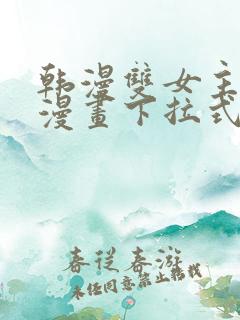 韩漫雙女主
漫畫下拉式
春従春游
未经同意禁止转载